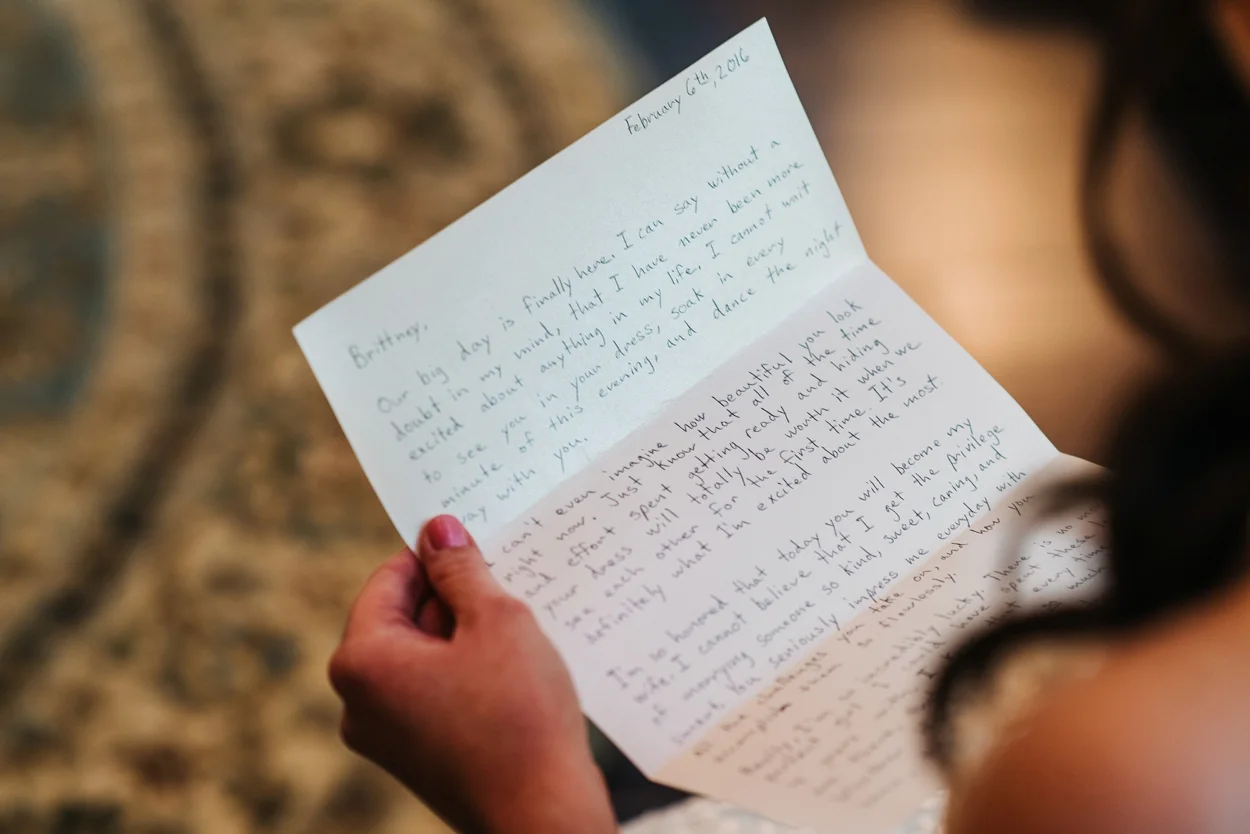 February 6th, 2016
Brittney,
Our big day is finally here. I can say without a
doubt in my mind, that I have never been more
excited about anything in my life. I cannot wait
to see you in your dress, soak in every
minute of this evening, and dance the night
way with you.
can't even imagine how beautiful you look
right now. Just know that all of the time
and effort spent getting ready and hiding
your dress will totally be worth it when we
see each other for the first time. It's
definitely what I'm excited about the most.
I'm so honored that today you will become my
wife. I cannot believe that I get the privilege
of marrying someone so kind, sweet, caring, and
You seriously impress me everyday with
all the challenges you take on, and how you
accomplish them so flawlessly.
Really, I'm so incredibly lucky. There is no
spent these
every